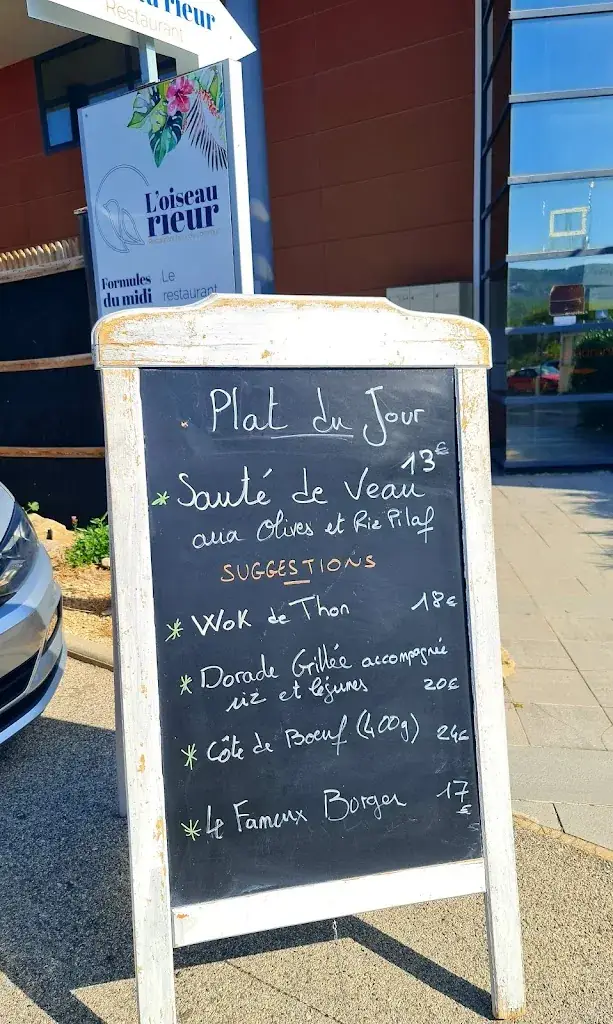 rieur
Restaurant
L'oiseau
rieur
Formules
du midi
Le
restaurant
Plat du Jour
13€
* Sauté de Veau
aux Olives et Riz Pilaf
SUGGESTIONS
* Wok de Thon 18€
* Dorade Grillée accompagnée
riz et légumes 20€
* Côte de Boeuf (400g) 24€
* Le Fameux Burger 17
€